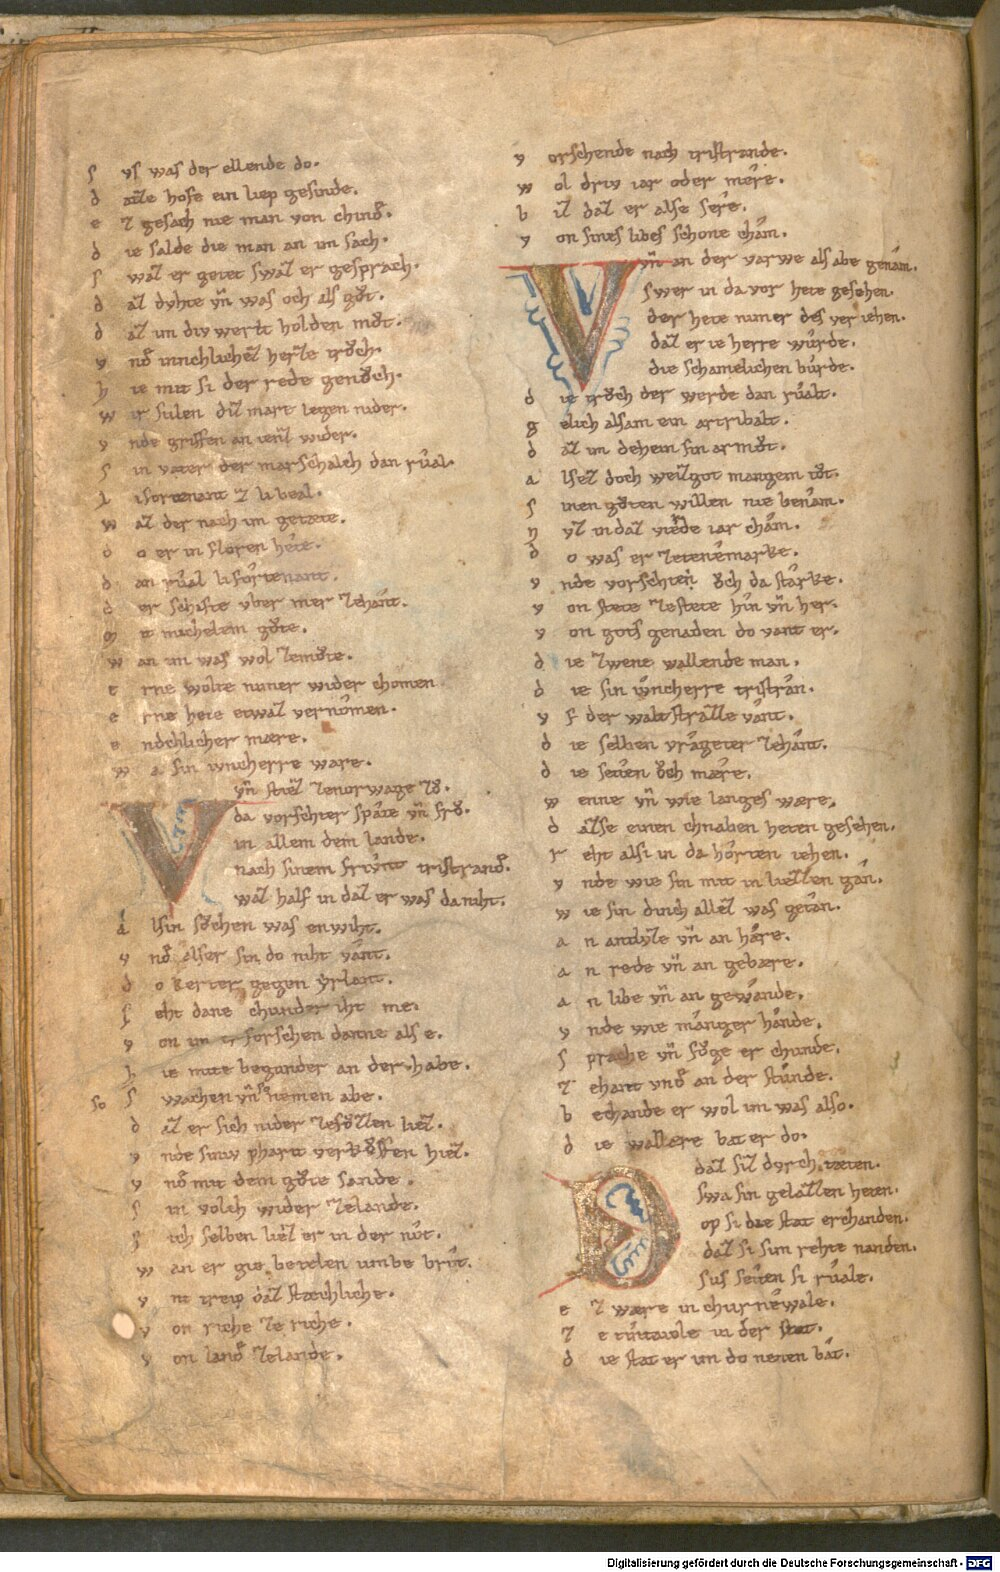 s vs was der ellende do.
d aͤzze hofe ein liep gesinde.
e z gesach nie man von chinð.
d ie salde die man an im sach.
s waz er getet swaz er gesprach.
d az dvhte vñ was och als gůt.
d az im div werlt holden můt.
v nð innchlichez herze trůch.
h ie mit si der rede genůch.
w ir sulen diz mære legen nider.
v nde griffen an ienz wider.
s in vater der marschalch dan rûal.
l i foitenant z li beal.
w az der nach im getæte.
d o er in floren hete.
d an rûal li foitenant.
d er schifte vber mer zehant.
m it michelem gůte.
w an im was wol zemůte.
e rne wolte nimer wider chomen
e rne hete etwaz vernomen.
e ndchlicher mære.
w a sin ivncherre ware.
V vñ stiez zenorwæge zů.
da vorschter späte vñ frů.
in allem dem lande.
nach sinem frivnt tristrand.
waz half in daz er was da niht.
a lsin sůchen was enwiht.
v nð alser sin do niht vant.
d o kerter gegen ŷrlant.
s eht dane chunder iht me.
v on im erforschen danne als e.
h ie mite begunder an der habe.
so s wachen vñ so nemen abe.
d az er sich nider zefůzzen liez.
v nde siniv phærit verkůffen hiez.
v nð mit dem gůte sande.
s in volch wider zelande.
s ich selben liez er in der nôt.
w an er gie betelen umbe brôt.
v nt treip daz stæchliche.
v on riche ze riche.
v on land zelande.
v orschende nach tristrande.
w ol driv iar oder mere.
b iz daz er alse sere.
v on sines libes schone cham.
V vñ an der varwe als abe genam.
swer in da vor hete gesehen.
der hete nimer des veriehen.
daz er ie herre wurde.
die schamelichen burde.
d ie trůch der werde dan rûalt.
g elich alsam ein artribalt.
d az im dehein sin armůt.
a lsez doch weizgot mangem tůt.
s inen gůten willen nie benam.
n v in daz vierde iar cham.
d o was er zetenemarke.
v nde vorschten ůch da starke.
v on stete zestete hin vñ her.
v on gots genaden do vant er.
d ie zwene wallende man.
d ie sin ivncherre tristran.
v f der waltstrazze vant.
d ie selben vragter zehant.
d ie seiten ůch mære.
w enne vñ wie langes wære.
d azse einen chnaben heten gesehen.
r eht alsi in da horten iehen.
v nde wie sin mit in liezzen gan.
w ie sin dinch allez was getan.
a n antlvze vñ an hâre.
a n rede vñ an gebære.
a n libe vñ an gewande.
v nde wie manger hande.
s prache vñ fůge er chunde.
z ehant vnð an der stunde.
b echande er wol im was also.
d ie wallære bat er do.
D daz siz dvrch tæten.
swa sin gelazzen heten.
op si die stat erchanden.
daz si sim rehte nanden.
sus seiten si rûale.
e z wære in churnewale.
z e tintaiole in der stat.
d ie stat er im do nenen bat.
Digitalisierung gefördert durch die Deutsche Forschungsgemeinschaft - DFG